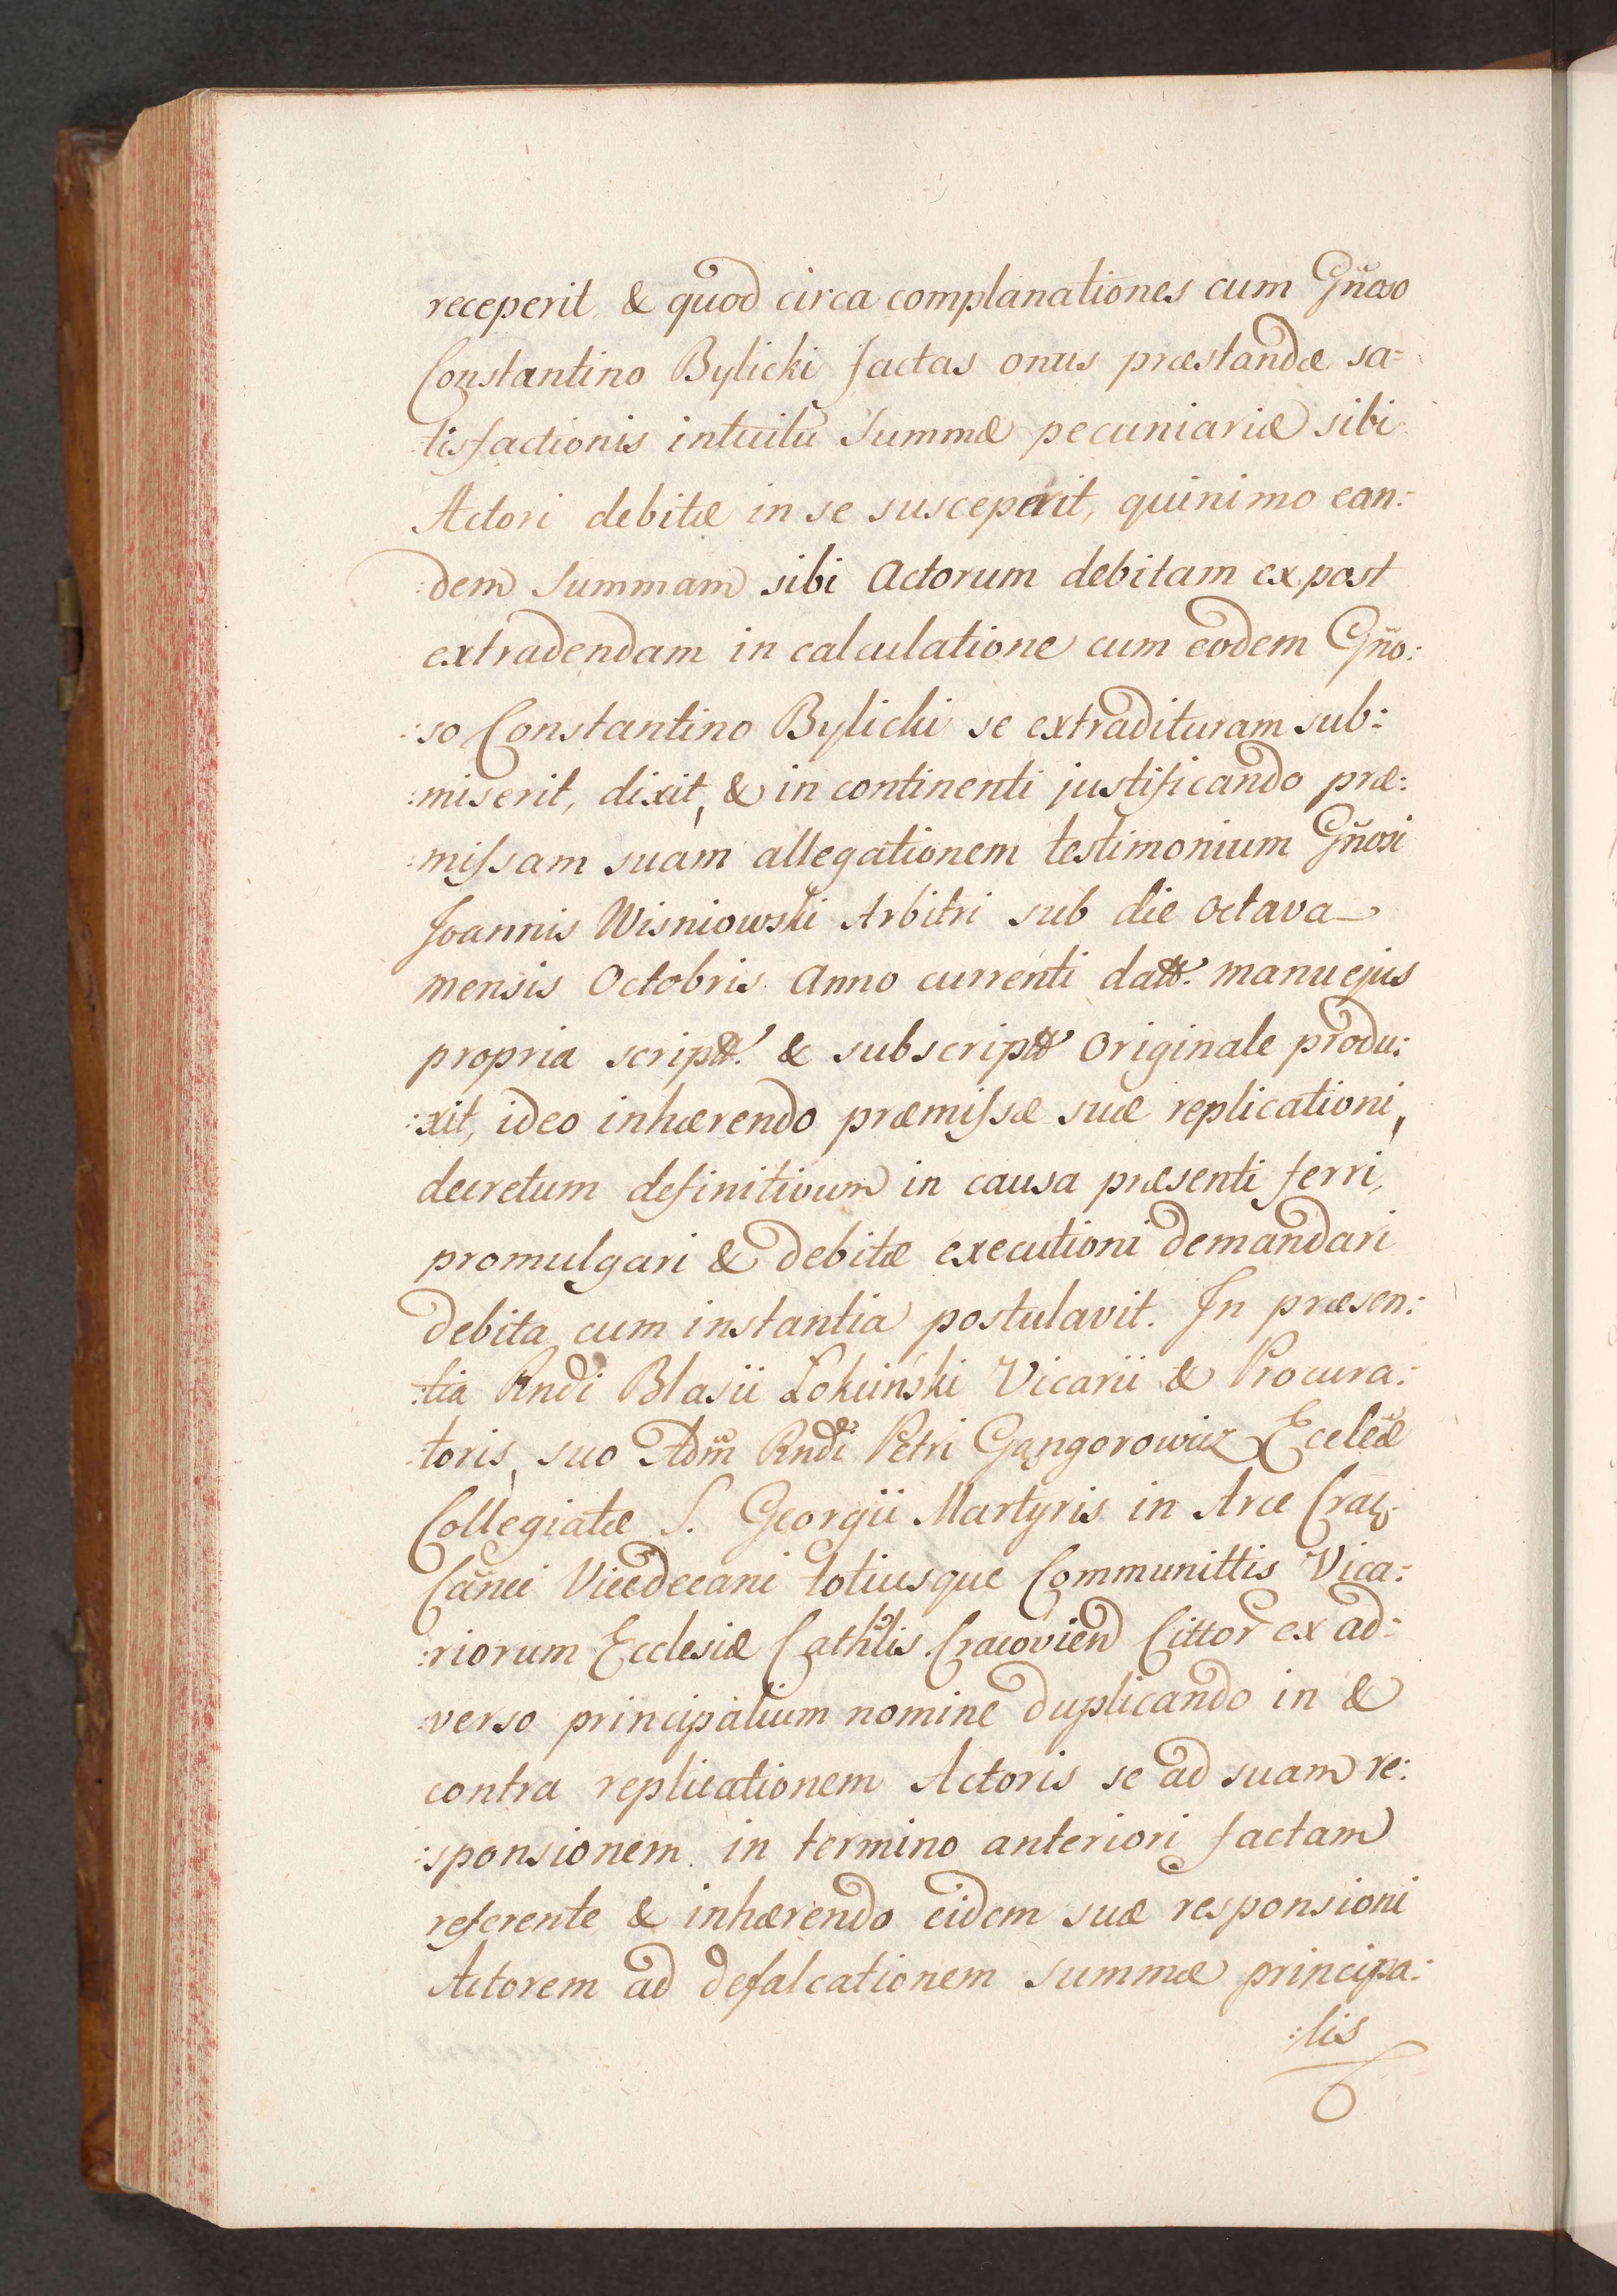 receperit, & quod circa complanationes cum Gñoso
Constantino Bylicki factas onus præstandæ sa=
tisfactionis intuitu Summæ pecuniariæ sibi
Actori debitæ in se susceperit, quinimo ean:
:dem Summam sibi Actorum debitam ex post
extradendam in calculatione cum eodem Gño:
:so Constantino Bylicki se extradituram sub:
:miserit, dixit, & in continenti justificando præ:
:missam suam allegationem testimonium Gñosi
Joannis Wisniowski Arbitri sub die Octava
mensis Octobris Anno currenti datt. manu ejus
propria scriptt. & subscriptt Originale produ:
:xit, ideo inhærendo præmissæ suæ replicationi,
decretum definitivum in causa præsenti ferri,
promulgari & debitæ executioni demandari
debita cum instantia postulavit. In præsen:
:tia Rndi Blasii Łokuinski Vicarii & Procura:
:toris, suo Adm̃ Rndi Petri Gangorowicz Eccleæ
Collegiatæ S. Georgii Martyris in Arce Crac.
Cañci Vicedecani totiusque Communittis Vica:
:riorum Ecclesiæ Cathlis Cracovien Cittor ex ad:
:verso principalium nomine duplicando in &
contra replicationem Actoris se ad suam re:
:sponsionem in termino anteriori factam
referente & inhærendo eidem suæ responsioni
Actorem ad defalcationem summæ principa:
:lis